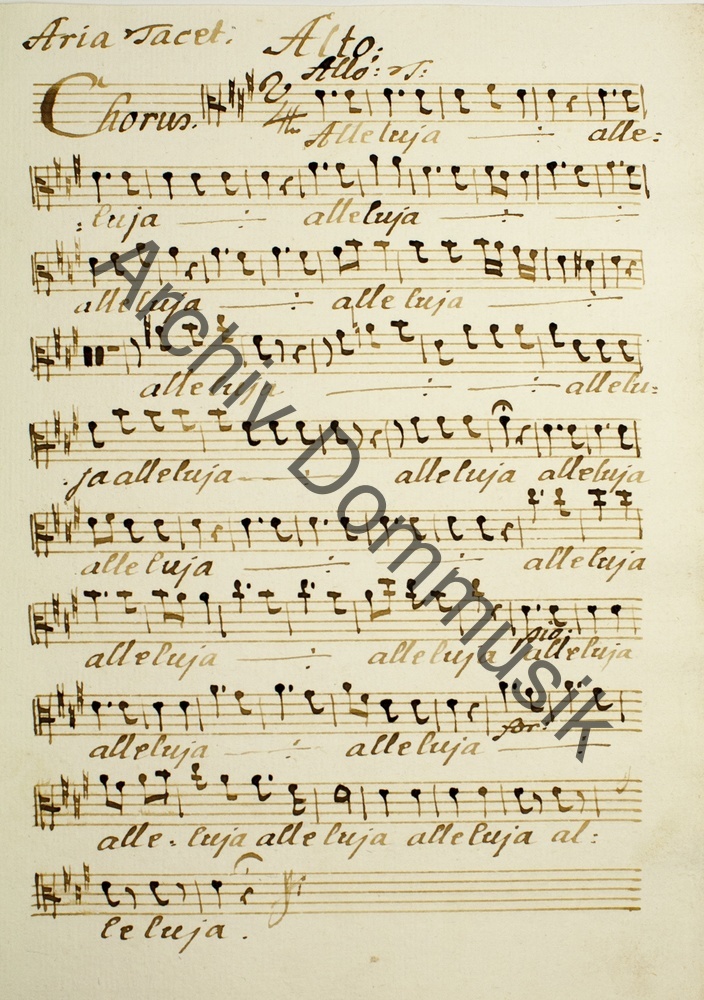 Aria Tacet: Alto:
Allo: T:
Chorus. 2/4
Alleluja —:— alle:
:luja —:— alleluja —:— —:—
alleluja —:— alleluja —:—
alleluja —:— —:— allelu:
:ja alleluja —:— alleluja alleluja
alleluja —:— —:— alleluja
pio:
alleluja —:— alleluja alleluja
alleluja —:— alleluja for: —:—
alle-luja alleluja alleluja al:
leluja.
Archiv Dommusik